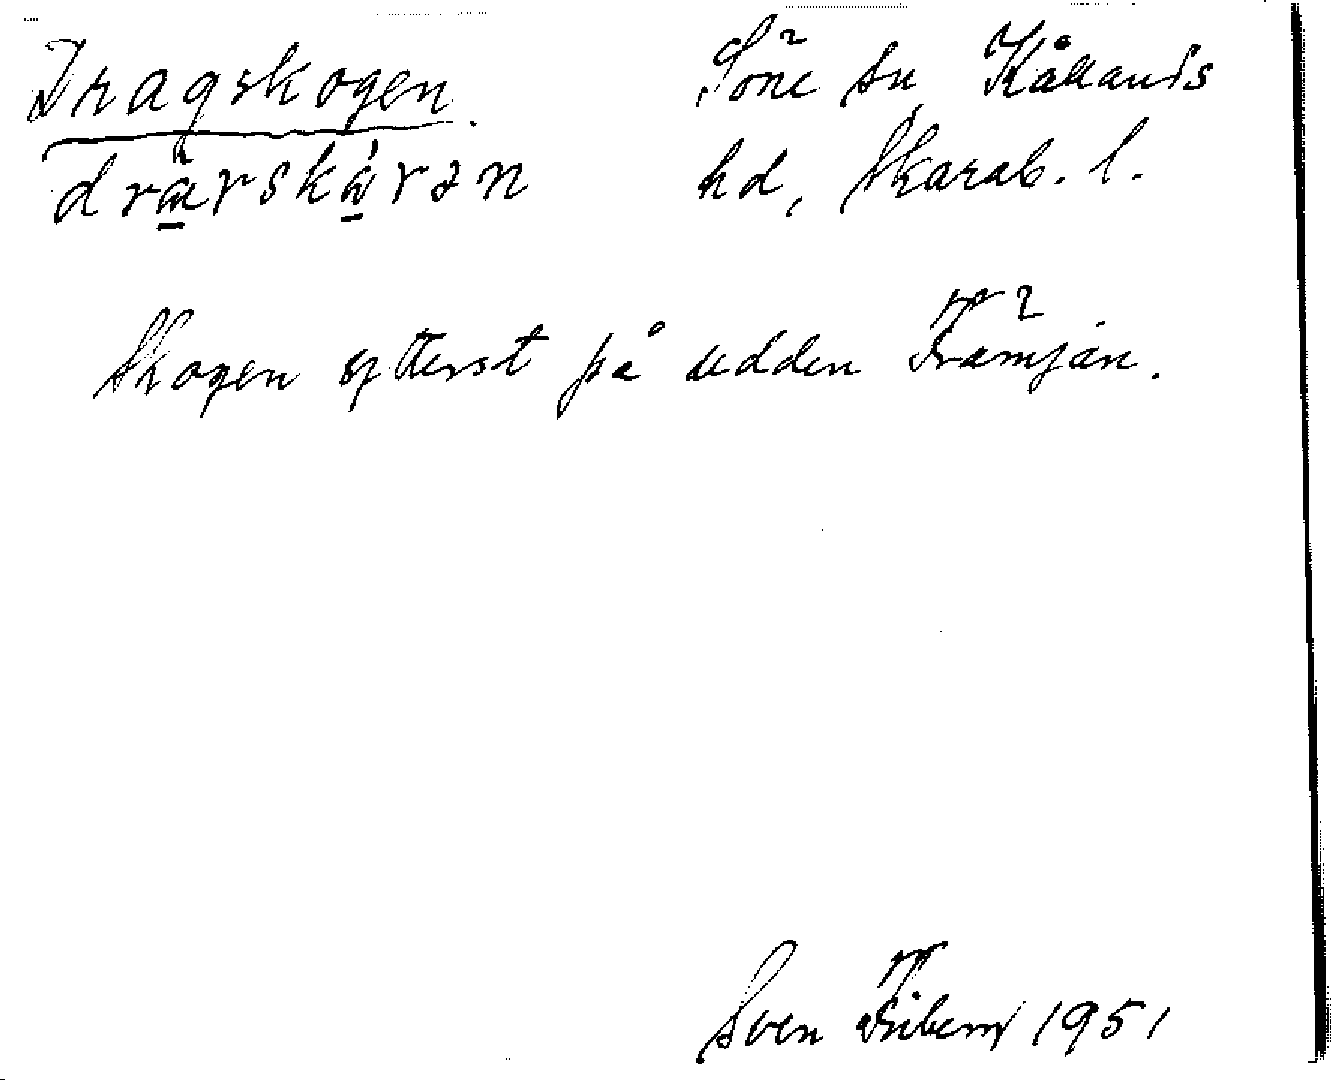 Dragskogen. Söne sn, Kållands
hd, Skarab. l.
Skogen ytterst på udden Främjän.
Sven Friberg 1951